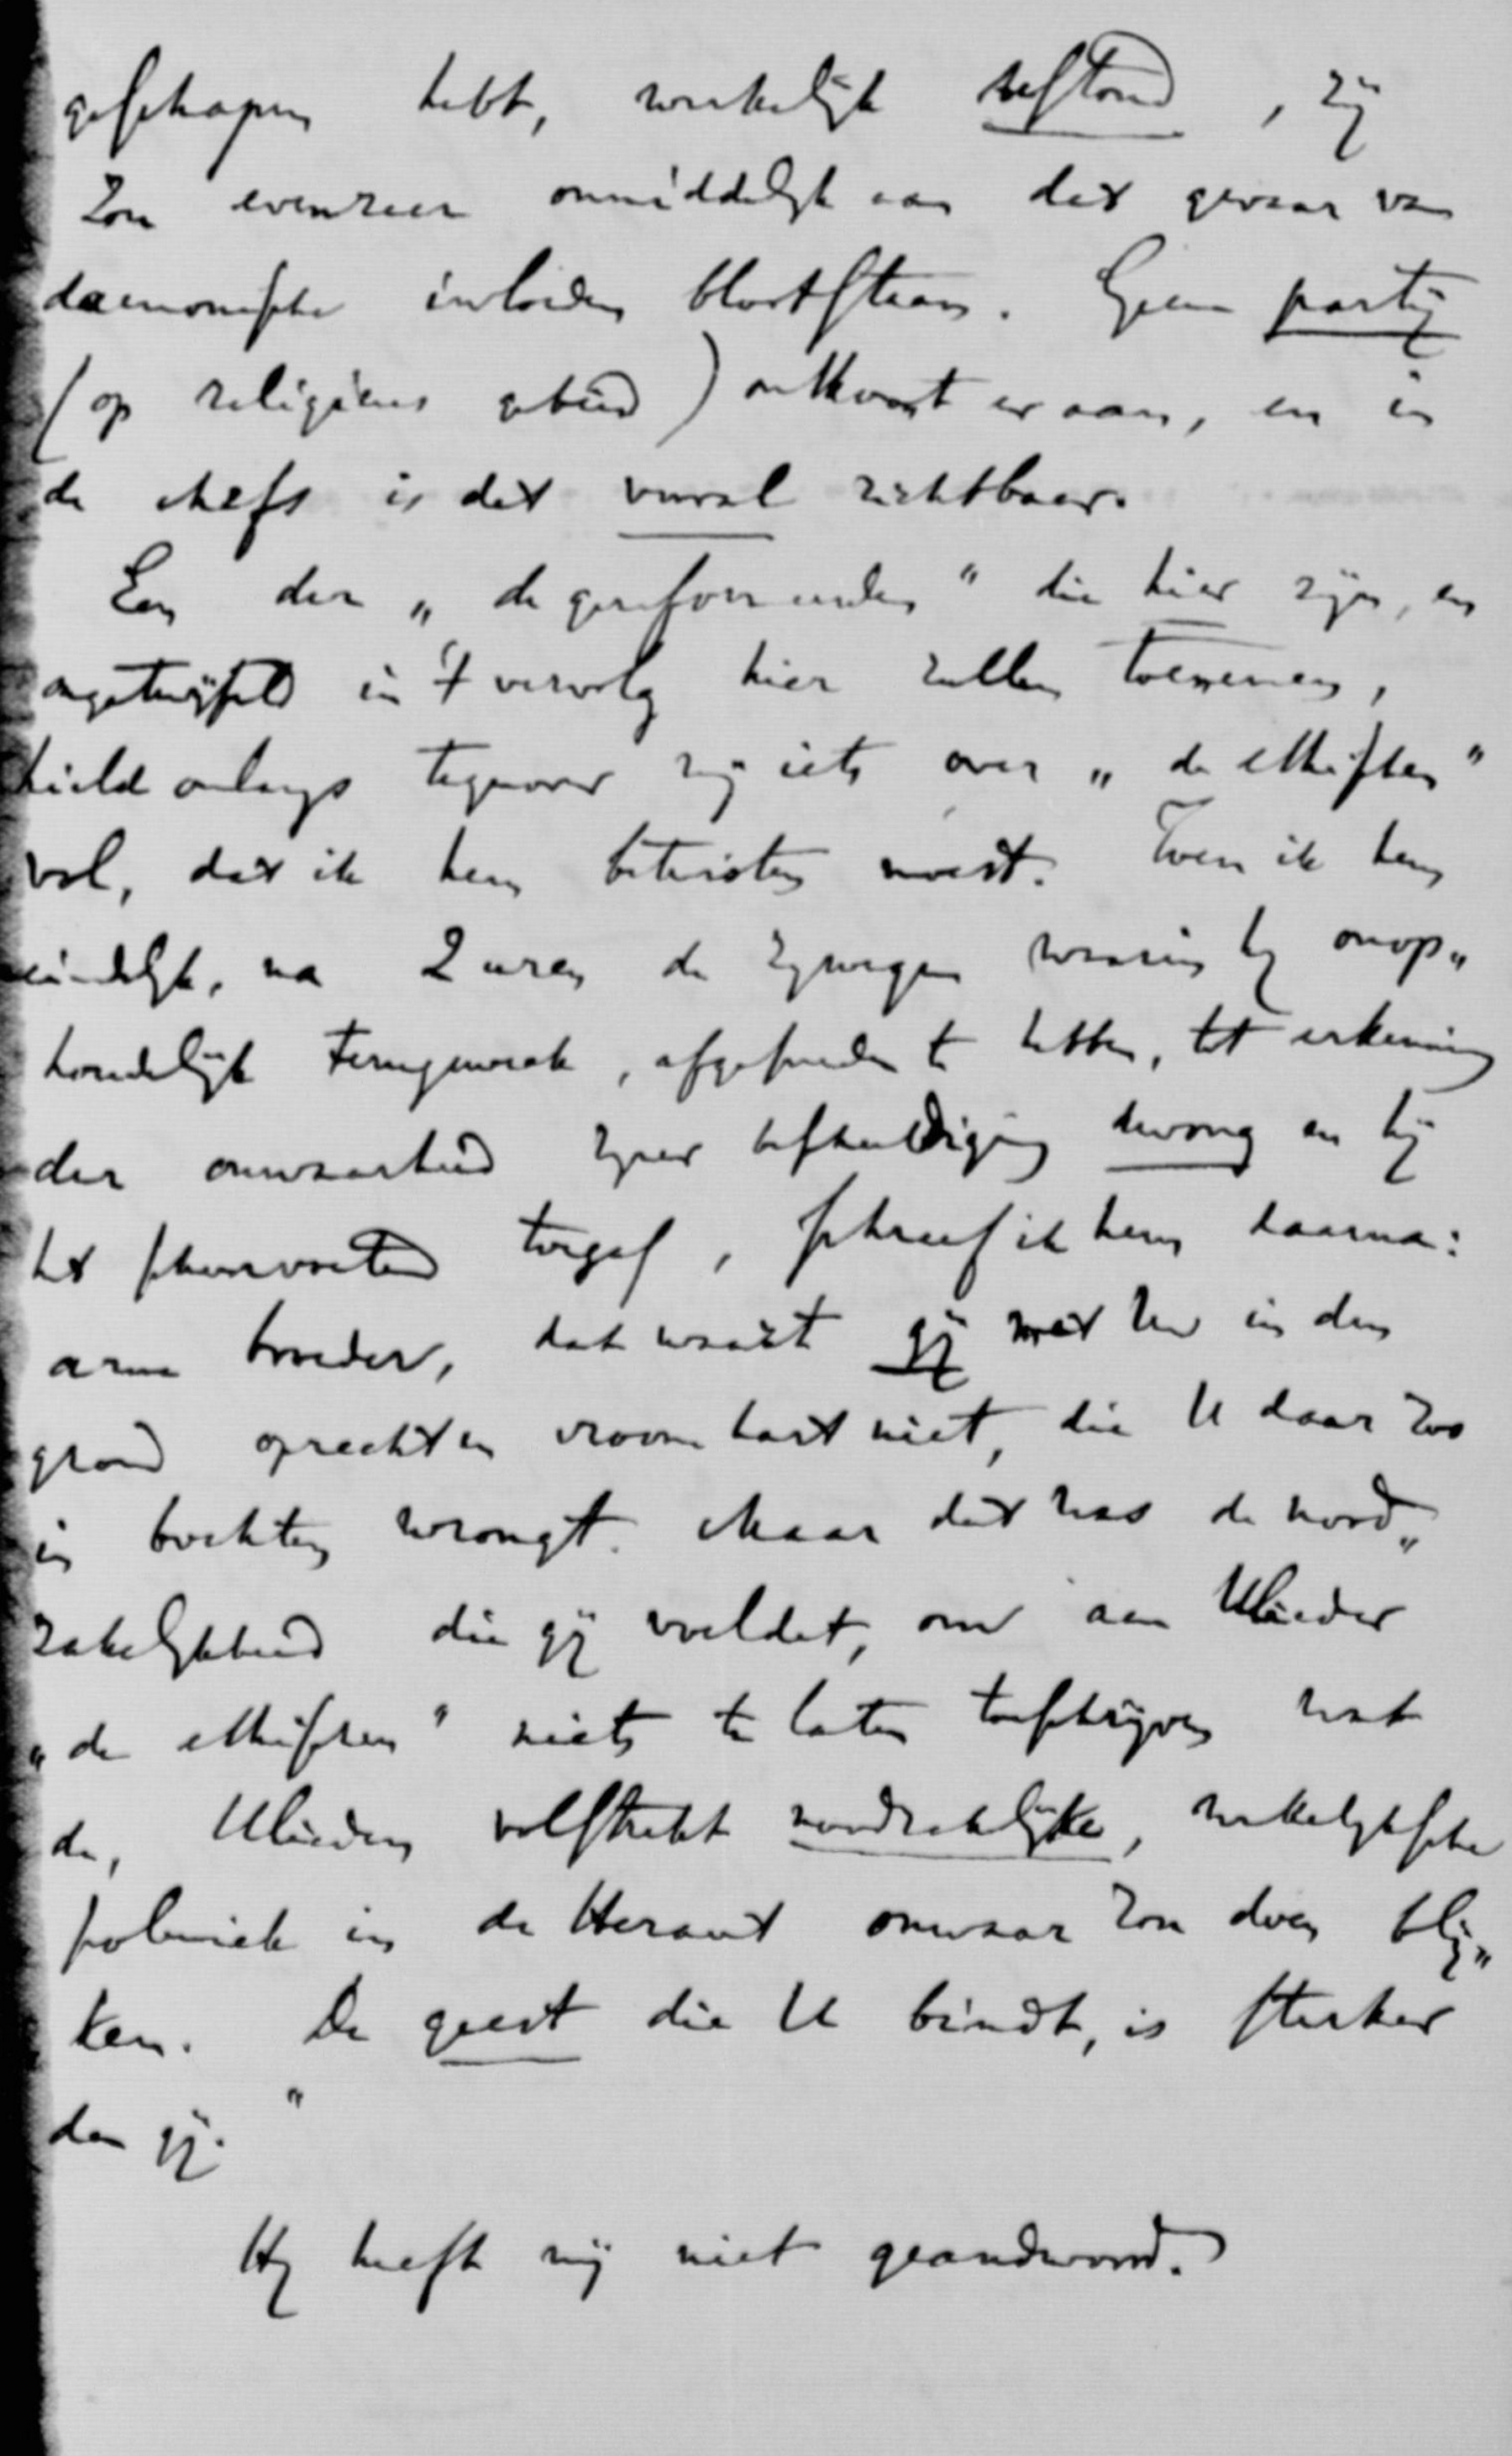 geschapen hebt, werkelijk bestond, zij
zou evenzeer onmiddelijk aan dat gevaar van
daemonische invloeden blootstaan. Geen partij
(op religieus gebied) ontkomt er aan, en in
de chefs is dat vooral zichtbaar.
Een der „de gereformeerden" die hier zijn, en
ongetwijfeld in 't vervolg hier zullen toenemen,
hield onlangs tegenover mij iets over „de ethischen"
vol, dat ik hem betwisten moest. Toen ik hem
eindelijk, na 2 uren de waarin hij onop„
houdelijk terugweek, te hebben, tot erkenning
der onwaarheid zijner beschuldiging dwong en hij
het toegaf, schreef ik hem daarna:
arme broeder, dat waart gij met Uw in den
grond oprecht en vroom hart niet, die U daar zoo
in bochten wrongt. Maar dat was de nood„
zakelijkheid die gij voeldet, om aan Ulieder
„de ethischen" niets te laten toeschrijven wat
de, Ulieden volstrekt noodzakelijke, wekelijksche
polemiek in de Heraut onwaar zou doen blij„
ken. De geest die U bindt, is sterker
dan gij."
Hij heeft mij niet geandwoord.